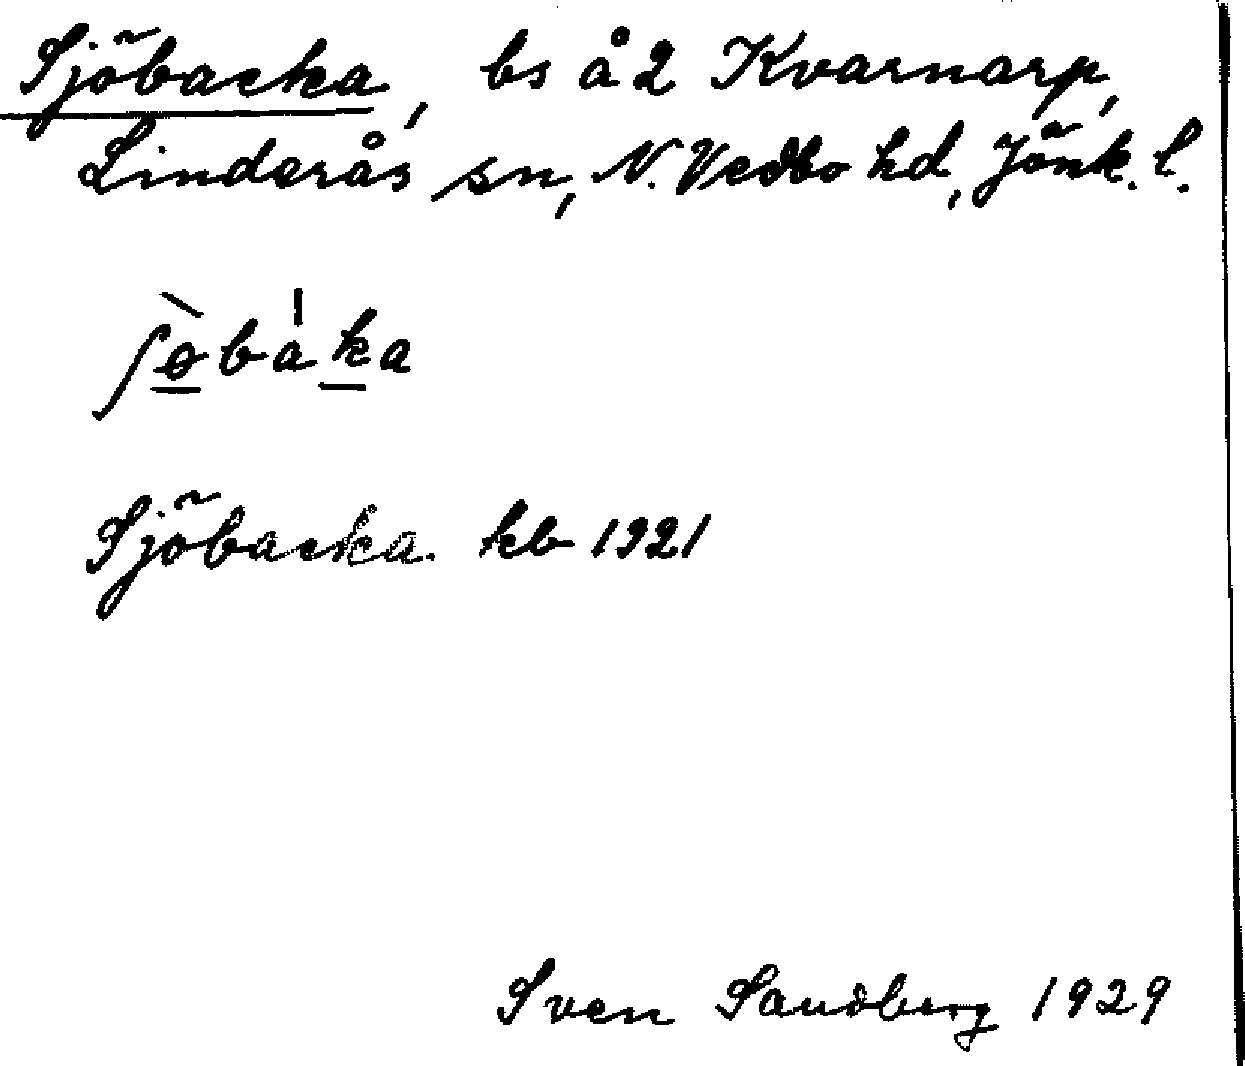 Sjöbacka, bs å 2 Kvarnarp,
Linderås sn, N. Vedbo hd, Jönk. l.
ʃɵ̀bàka
Sjöbacka. kb 1921
Sven Sandberg 1929